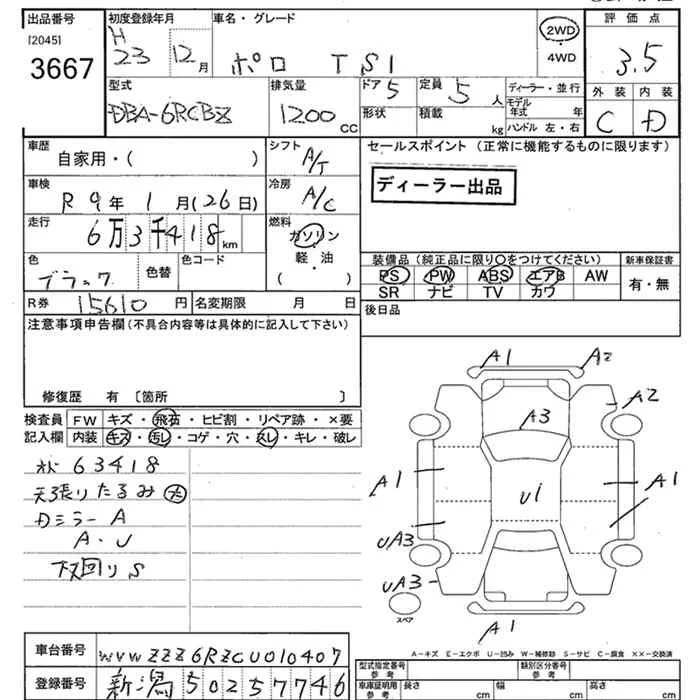 出品番号 初度登録年月 車名・グレード 評価点
[2045] H 23年 12月 ポロ TSI 2WD・4WD 3.5
3667
型式 排気量 ドア 5 定員 5人 ディーラー・並行 外装 内装
DBA-6RCBZ 1200cc 形状 積載 kg モデル年式 年 C D
ハンドル 左・右
車歴 シフト セールスポイント (正常に機能するものに限ります)
自家用・( ) A/T
ディーラー出品
車検 冷房
R 9年 1月(26日) A/C
走行 燃料
6万3千418km ガソリン
軽・油
( )
色 色替 色コード
ブラック
装備品(純正品に限り○をつけてください) 新車保証書
PS PW ABS エアB AW 有・無
SR ナビ TV カワ
R券 15610円 名変期限 月 日 後日品
注意事項申告欄(不具合内容等は具体的に記入して下さい)
修復歴 有 〔箇所 〕
検査員 FW キズ・飛石・ヒビ割・リペア跡・×要
記入欄 内装 キズ・汚レ・コゲ・穴・スレ・キレ・破レ
63418
天張りたるみ 大
Dミラー A
A・U
下回りS
A1 A2
A2
A3
A1 U1 A1
UA3
UA3
スペア
A1
A-キズ E-エクボ U-凹み W-補修跡 S-サビ C-腐食 XX-交換済
車台番号 WVWZZZ6RZCU010407
登録番号 新潟 502 5 7746
型式指定番号 参考 類別区分番号 参考
車庫証明用 参考 長さ cm 幅 cm 高さ cm